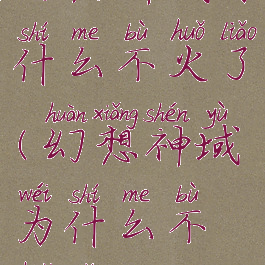 shí me bù huǒ liǎo
什么不火了
huàn xiǎng shén yù
(幻想神域
wéi shí me bù
为什么不